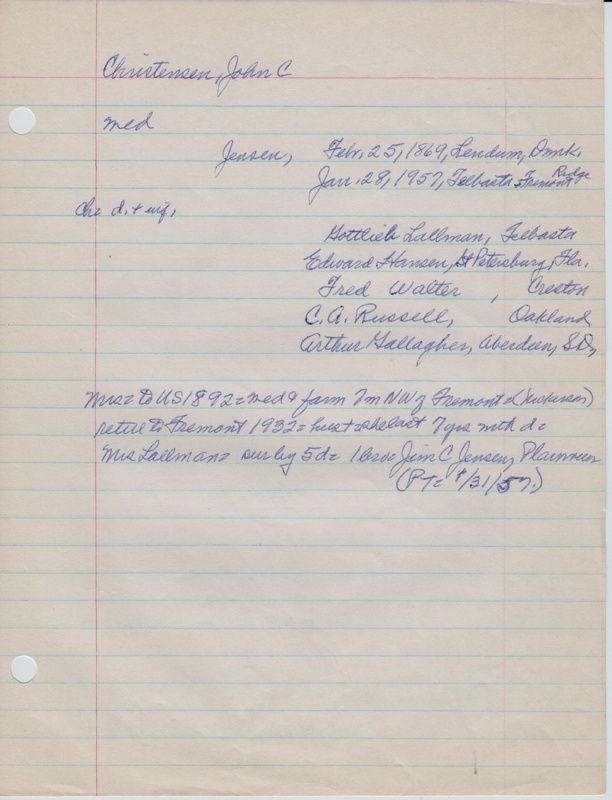 Christensen, John C
med
Jensen, Febr. 25, 1869, Lendum, Dmrk.
Jan. 28, 1957, Telbasta, Fremont Rudge
Chr d. + wif.
Gottlieb Lallman, Telbasta
Edward Hansen, St Petersburg, Fla.
Fred Walter, Creston
C.A. Russell, Oakland
Arthur Gallagher, Aberdeen, S.D.
Mrs = to US 1892 = med & farm 7m NW of Fremont
retire to Fremont 1932 = last 7 yrs with d =
Mrs Lallman = sur by 5d = 1 bro = Jim C Jensen, Plainview
(PT = 1/31/57.)